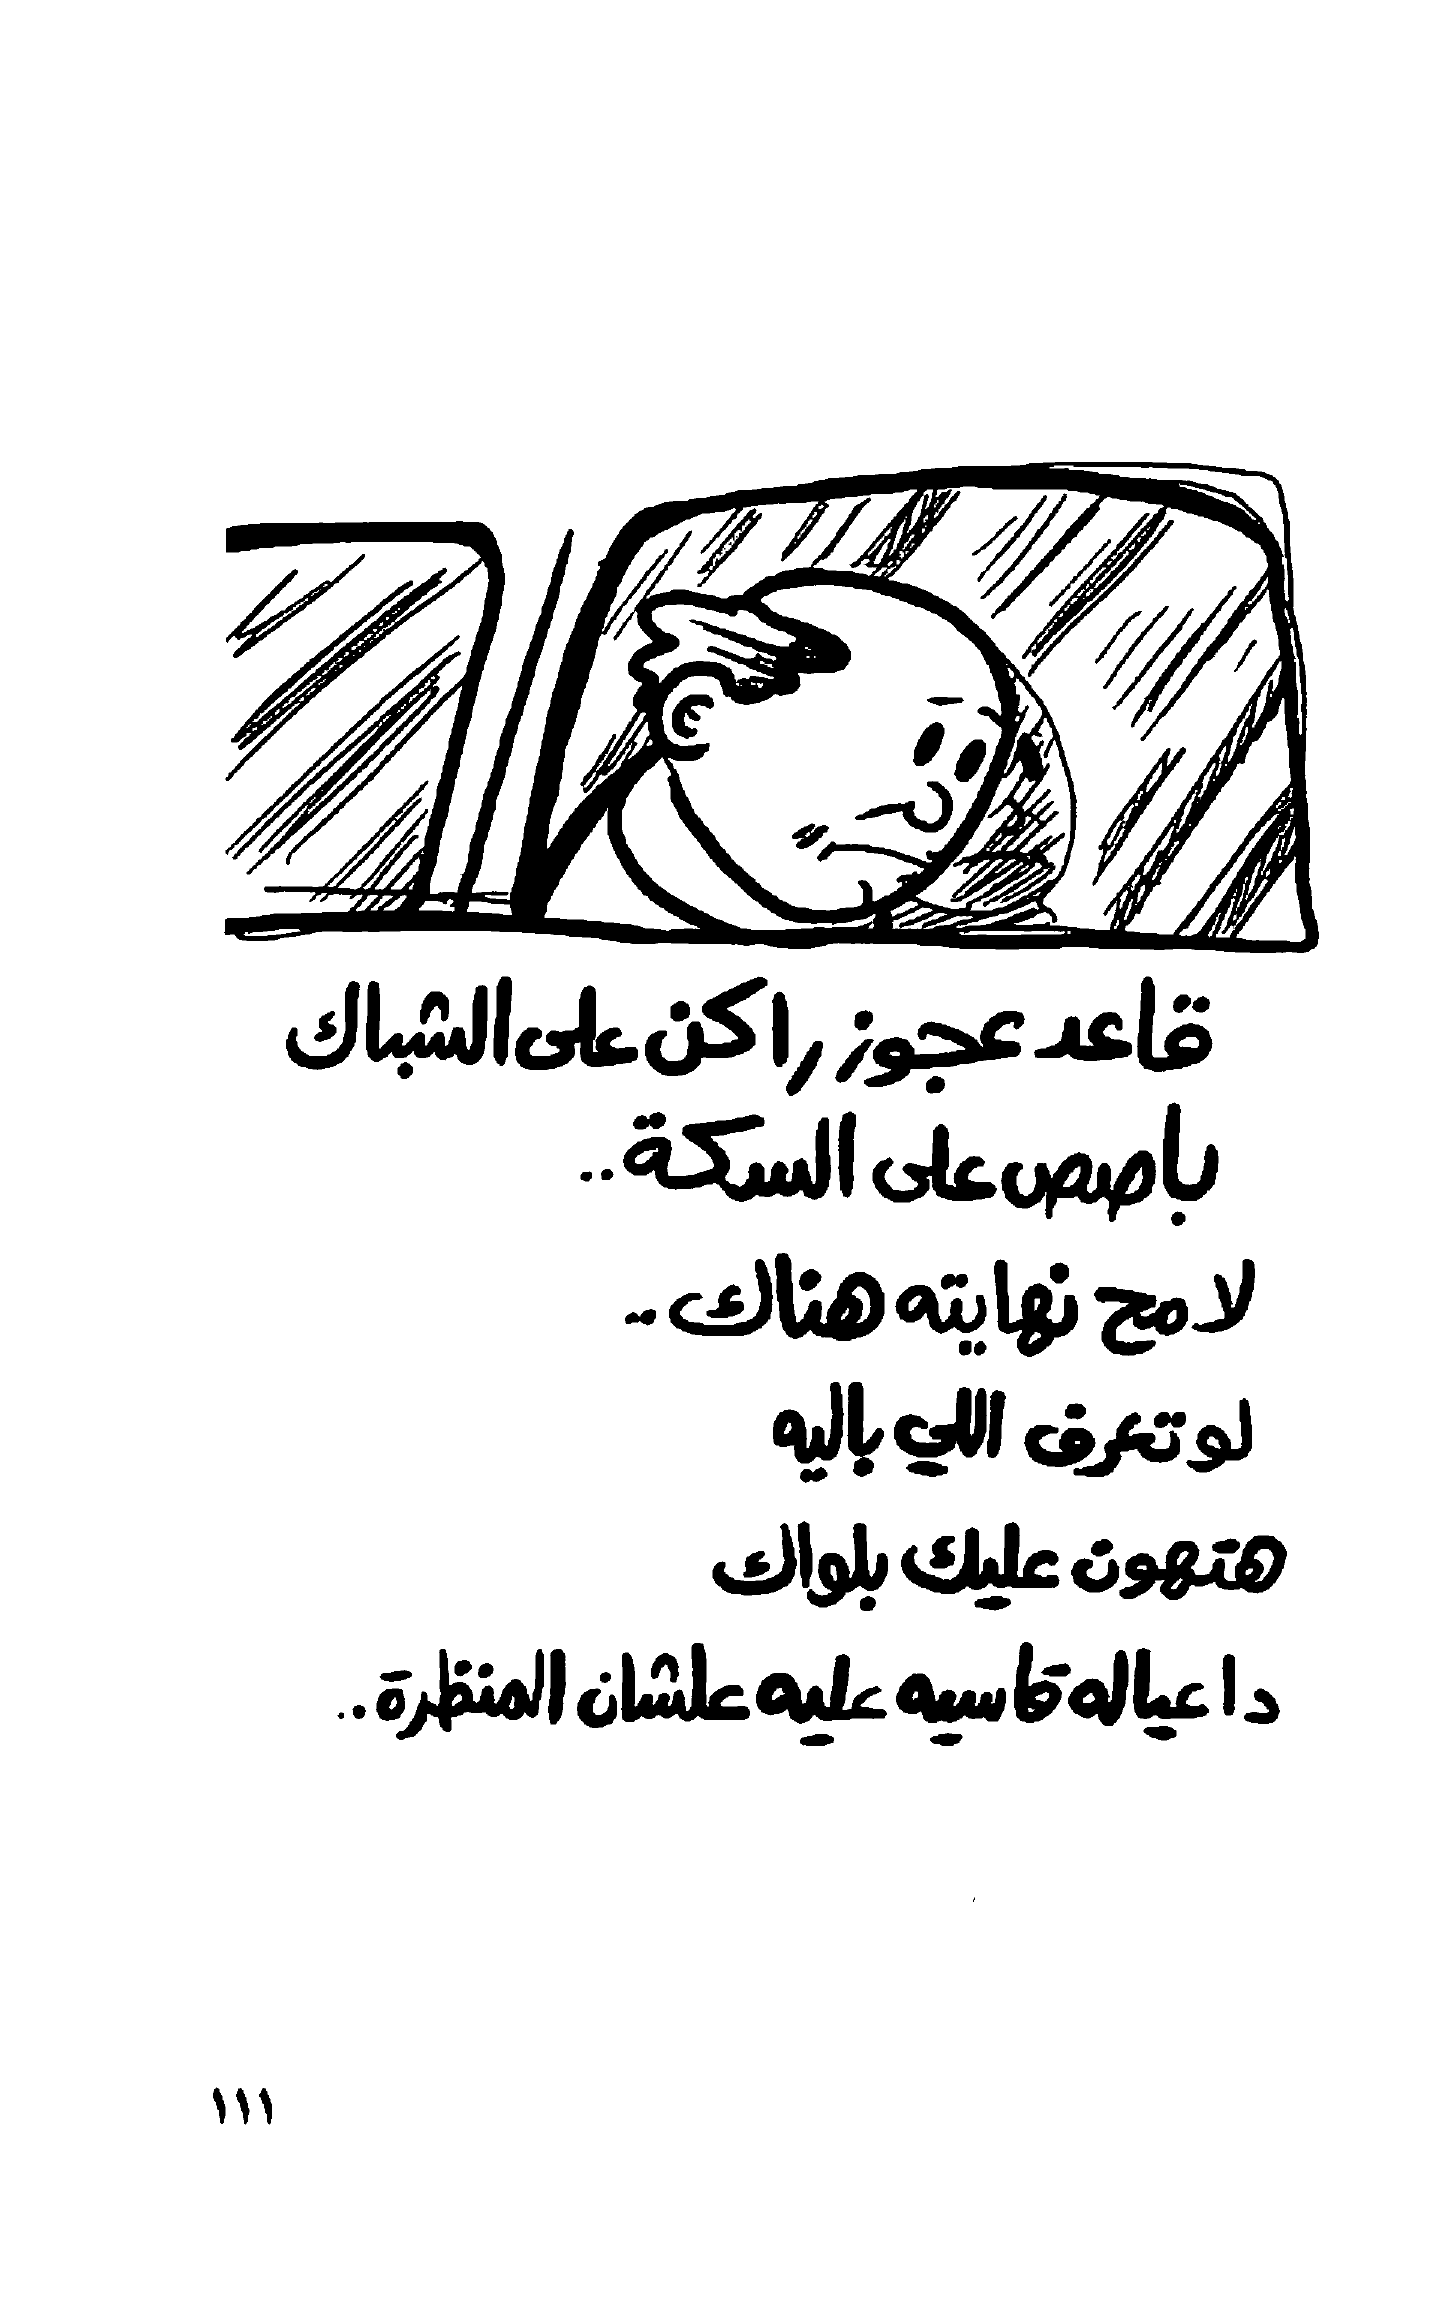 قاعد عجوز راكن على الشباك
باصص على السكة..
لامح نهايته هناك..
لو تعرف اللي باليه
هتهون عليك بلواك
دا عياله قاسيه عليه علشان المنظرة..
١١١